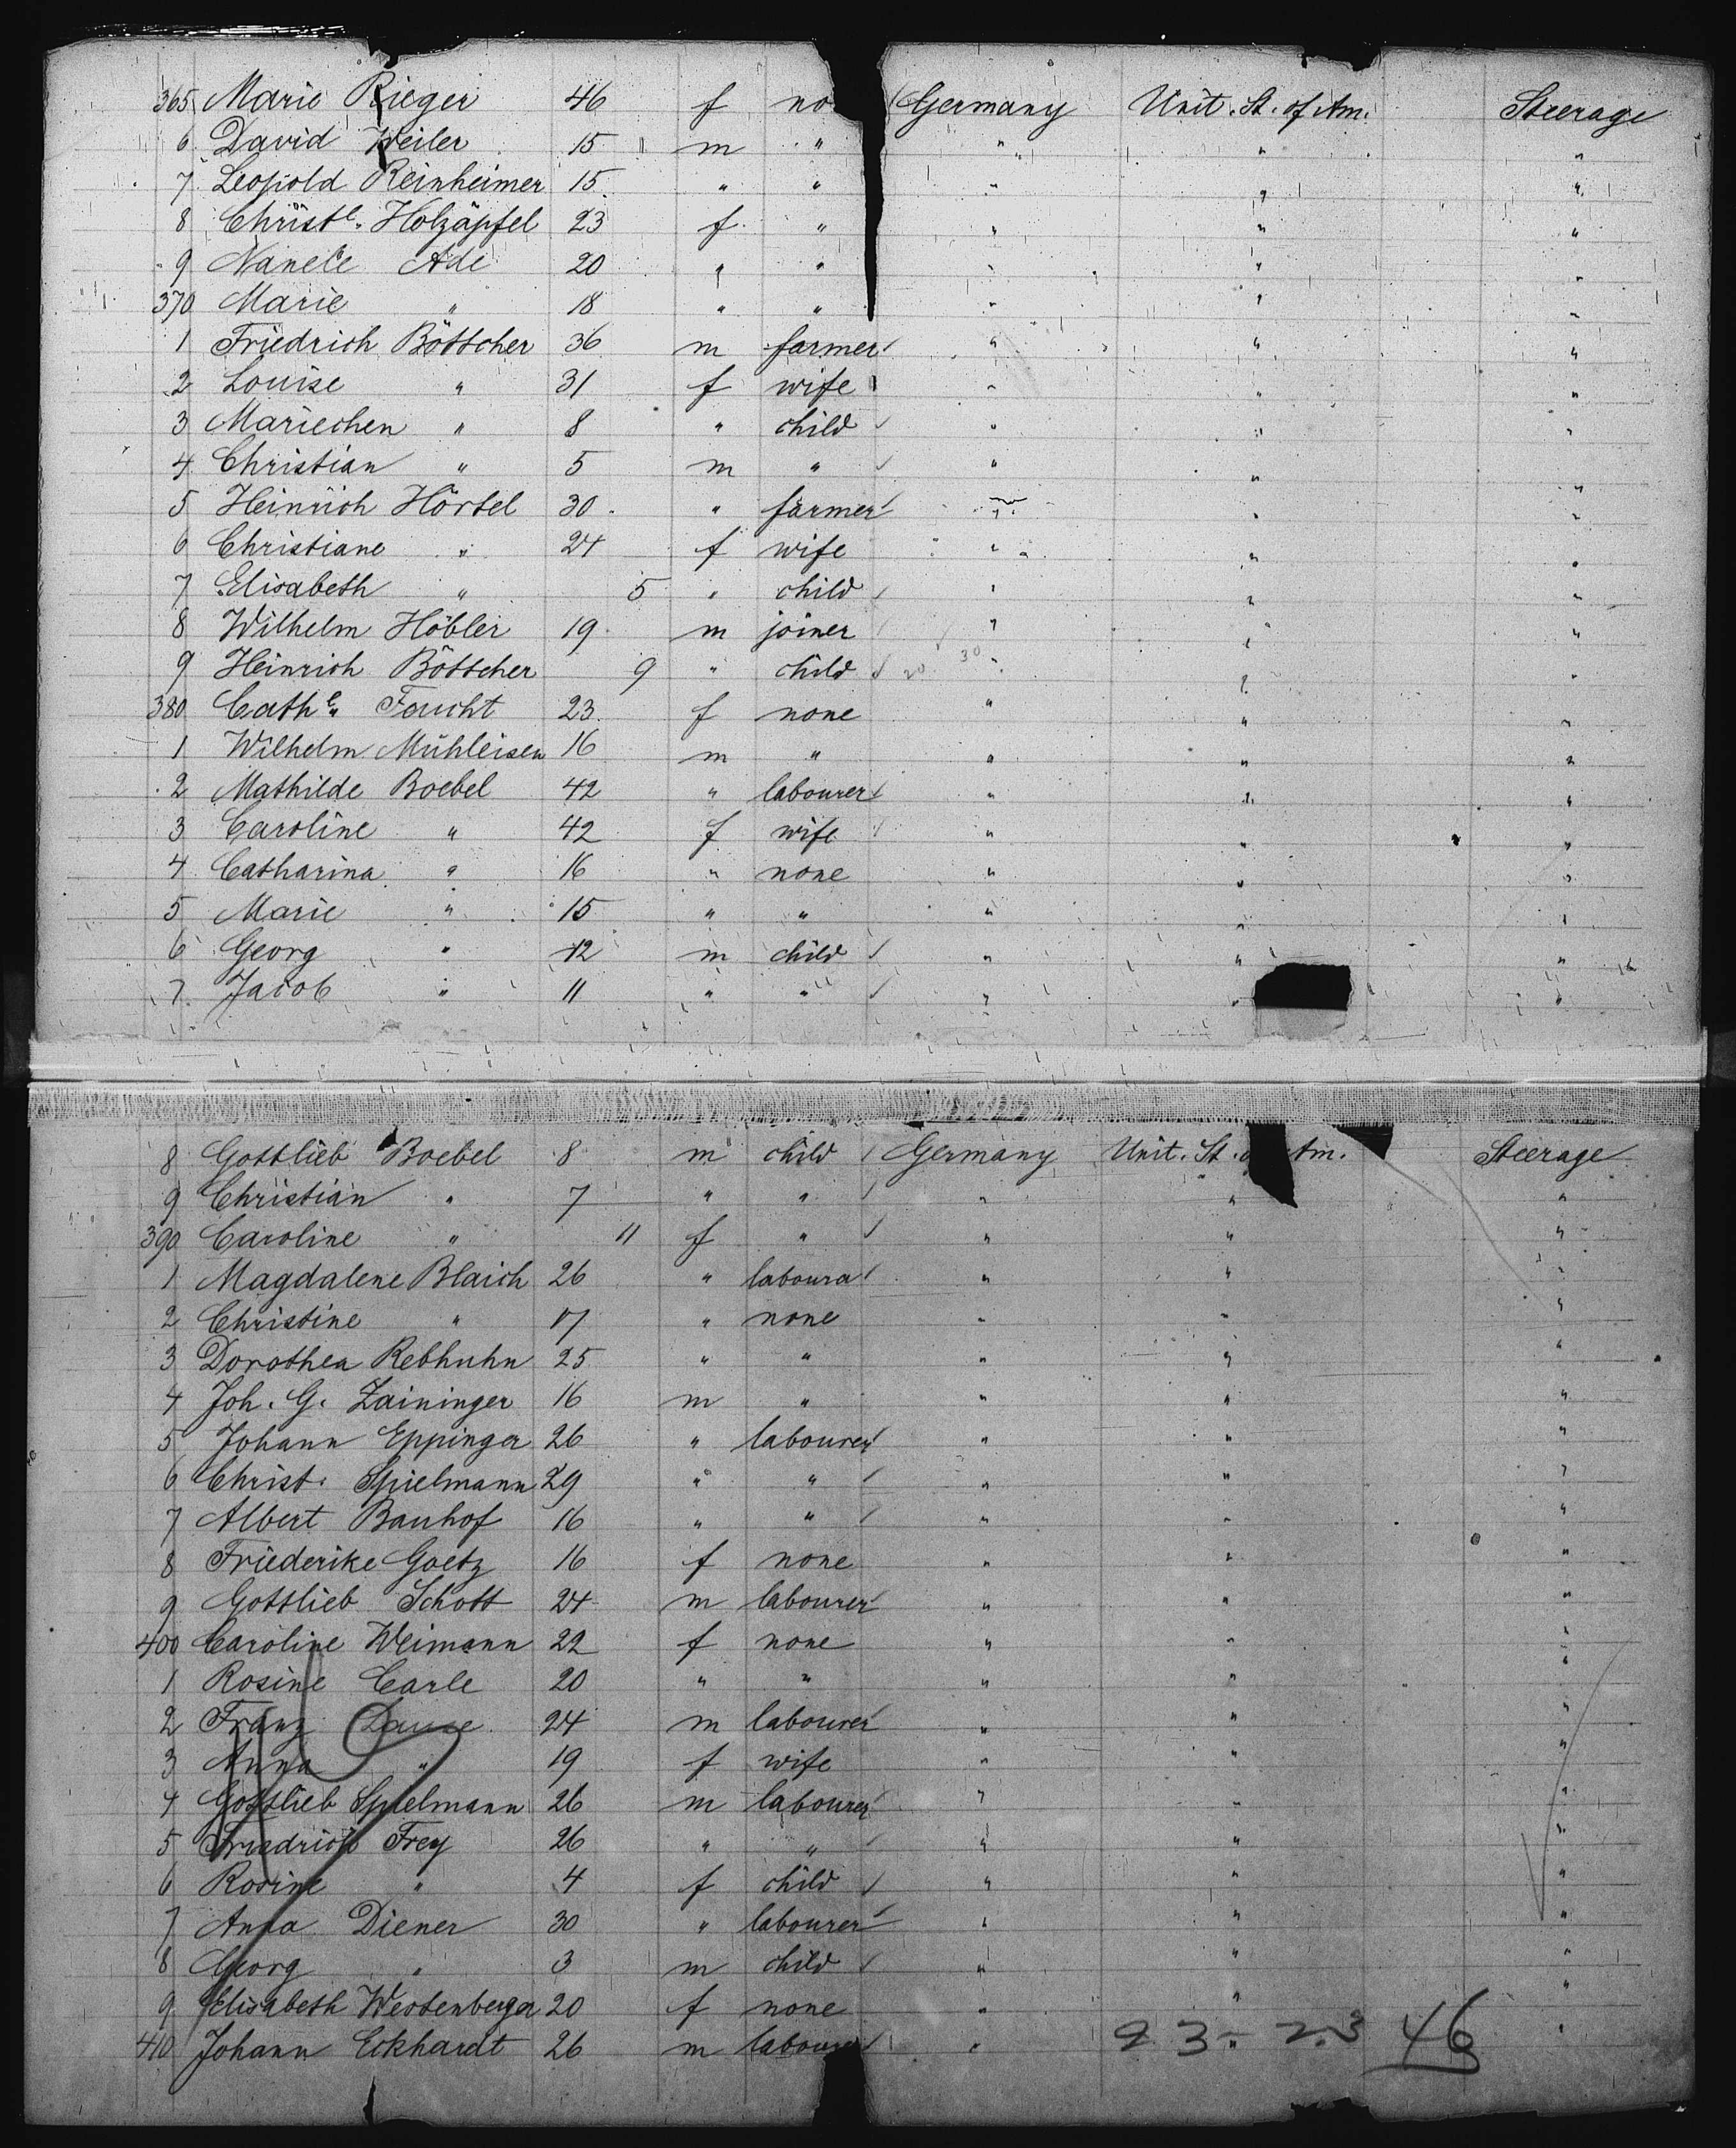 365 Marie Rieger 46 f no Germany Unit. St. of Am. Steerage
6 David Weiler 15 m " " " "
7 Leopold Reinheimer 15 " " " " "
8 Christe. Holzäpfel 23 f " " " "
9 Nanele Ade 20 " " " " "
370 Marie " 18 " " " " "
1 Friedrich Böttcher 36 m farmer " " "
2 Louise " 31 f wife " " "
3 Mariechen " 8 " child " " "
4 Christian " 5 m " " " "
5 Heinrich Hörtel 30 " farmer " " "
6 Christiane " 24 f wife " " "
7 Elisabeth " 5 " child " " "
8 Wilhelm Höbler 19 m joiner " " "
9 Heinrich Böttcher 9 " child 20 30 " " "
380 Cathe. Faucht 23 f none " " "
1 Wilhelm Mühleisen 16 m " " " "
2 Mathilde Boebel 42 " labourer " " "
3 Caroline " 42 f wife " " "
4 Catharina " 16 " none " " "
5 Marie " 15 " " " " "
6 Georg " 12 m child " " "
7 Jacob " 11 " " " " "
8 Gottlieb Boebel 8 m child Germany Unit. St. Am. Steerage
9 Christian " 7 " " " " "
390 Caroline " 11 f " " " "
1 Magdalene Blaich 26 " laboura " " "
2 Christine " 17 " none " " "
3 Dorothea Rebhuhn 25 " " " " "
4 Joh. G. Zaininger 16 m " " " "
5 Johann Eppinger 26 " labourer " " "
6 Christ. Spielmann 29 " " " " "
7 Albert Bauhof 16 " " " " "
8 Friederike Goetz 16 f none " " "
9 Gottlieb Schott 24 m labourer " " "
400 Caroline Weimann 22 f none " " "
1 Rosine Carle 20 " " " " "
2 Franz 24 m labourer " " "
3 Anna " 19 f wife " " "
4 Gottlieb Spielmann 26 m labourer " " "
5 Friedrich Frey 26 " " " " "
6 Rosine " 4 f child " " "
7 Anna Diener 30 " labourer " " "
8 Georg " 3 m child " " "
9 Elisabeth Westenberger 20 f none " " "
410 Johann Eckhardt 26 m labourer " " "
23 - 23 46